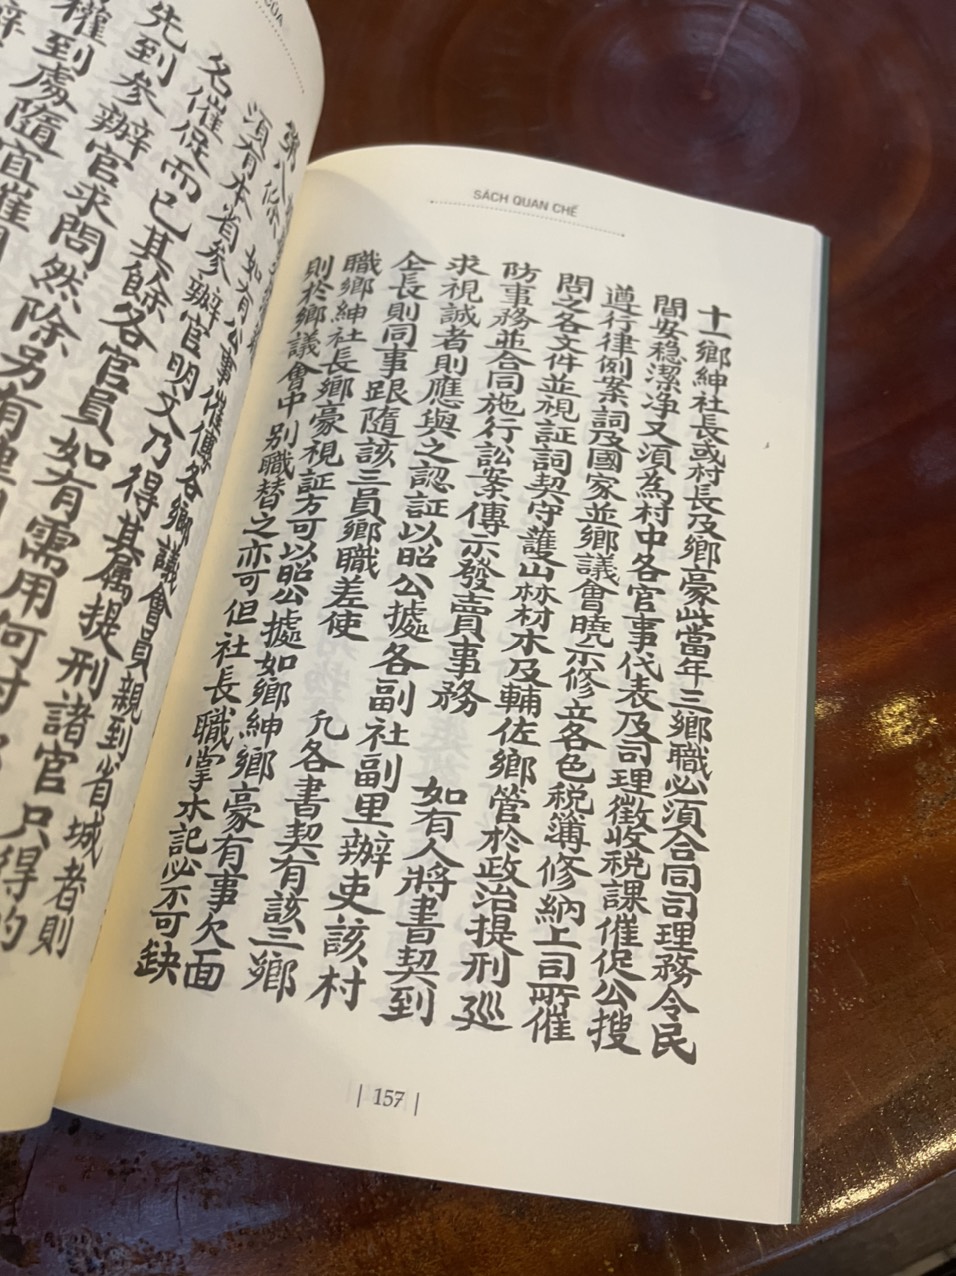 SÁCH QUAN CHẾ
十一鄉紳社長或村長及鄉豪此當年三鄉職必須合同司理務令民
間安穩潔净又須為村中各官事代表及司理徵收税課催促公搜
遵行律例案詞及國家並鄉議會曉示修立各色税簿修納上司所催
問之各文件並視証詞契守護山林材木及輔佐鄉管於政治提刑廵
防事務並合同施行訟案傳示發賣事務
如有人將書契到
求視誠者則應與之認証以昭公據各副社副里辦吏該村
仝長則同事跟隨該三員鄉職差使
凢各書契有該三鄉
職鄉紳社長鄉豪視証方可以昭公據如鄉紳鄉豪有事欠面
則於鄉議會中别職替之亦可但社長職掌木記必不可缺
157
如有公事催傳各鄉議會員親到省城者則
須有本省參辦官明文乃得其屬提刑諸官只得的
名催促而已其餘各官員如有需用何村
先到參辦官求問然除另有
權到處隨宜催